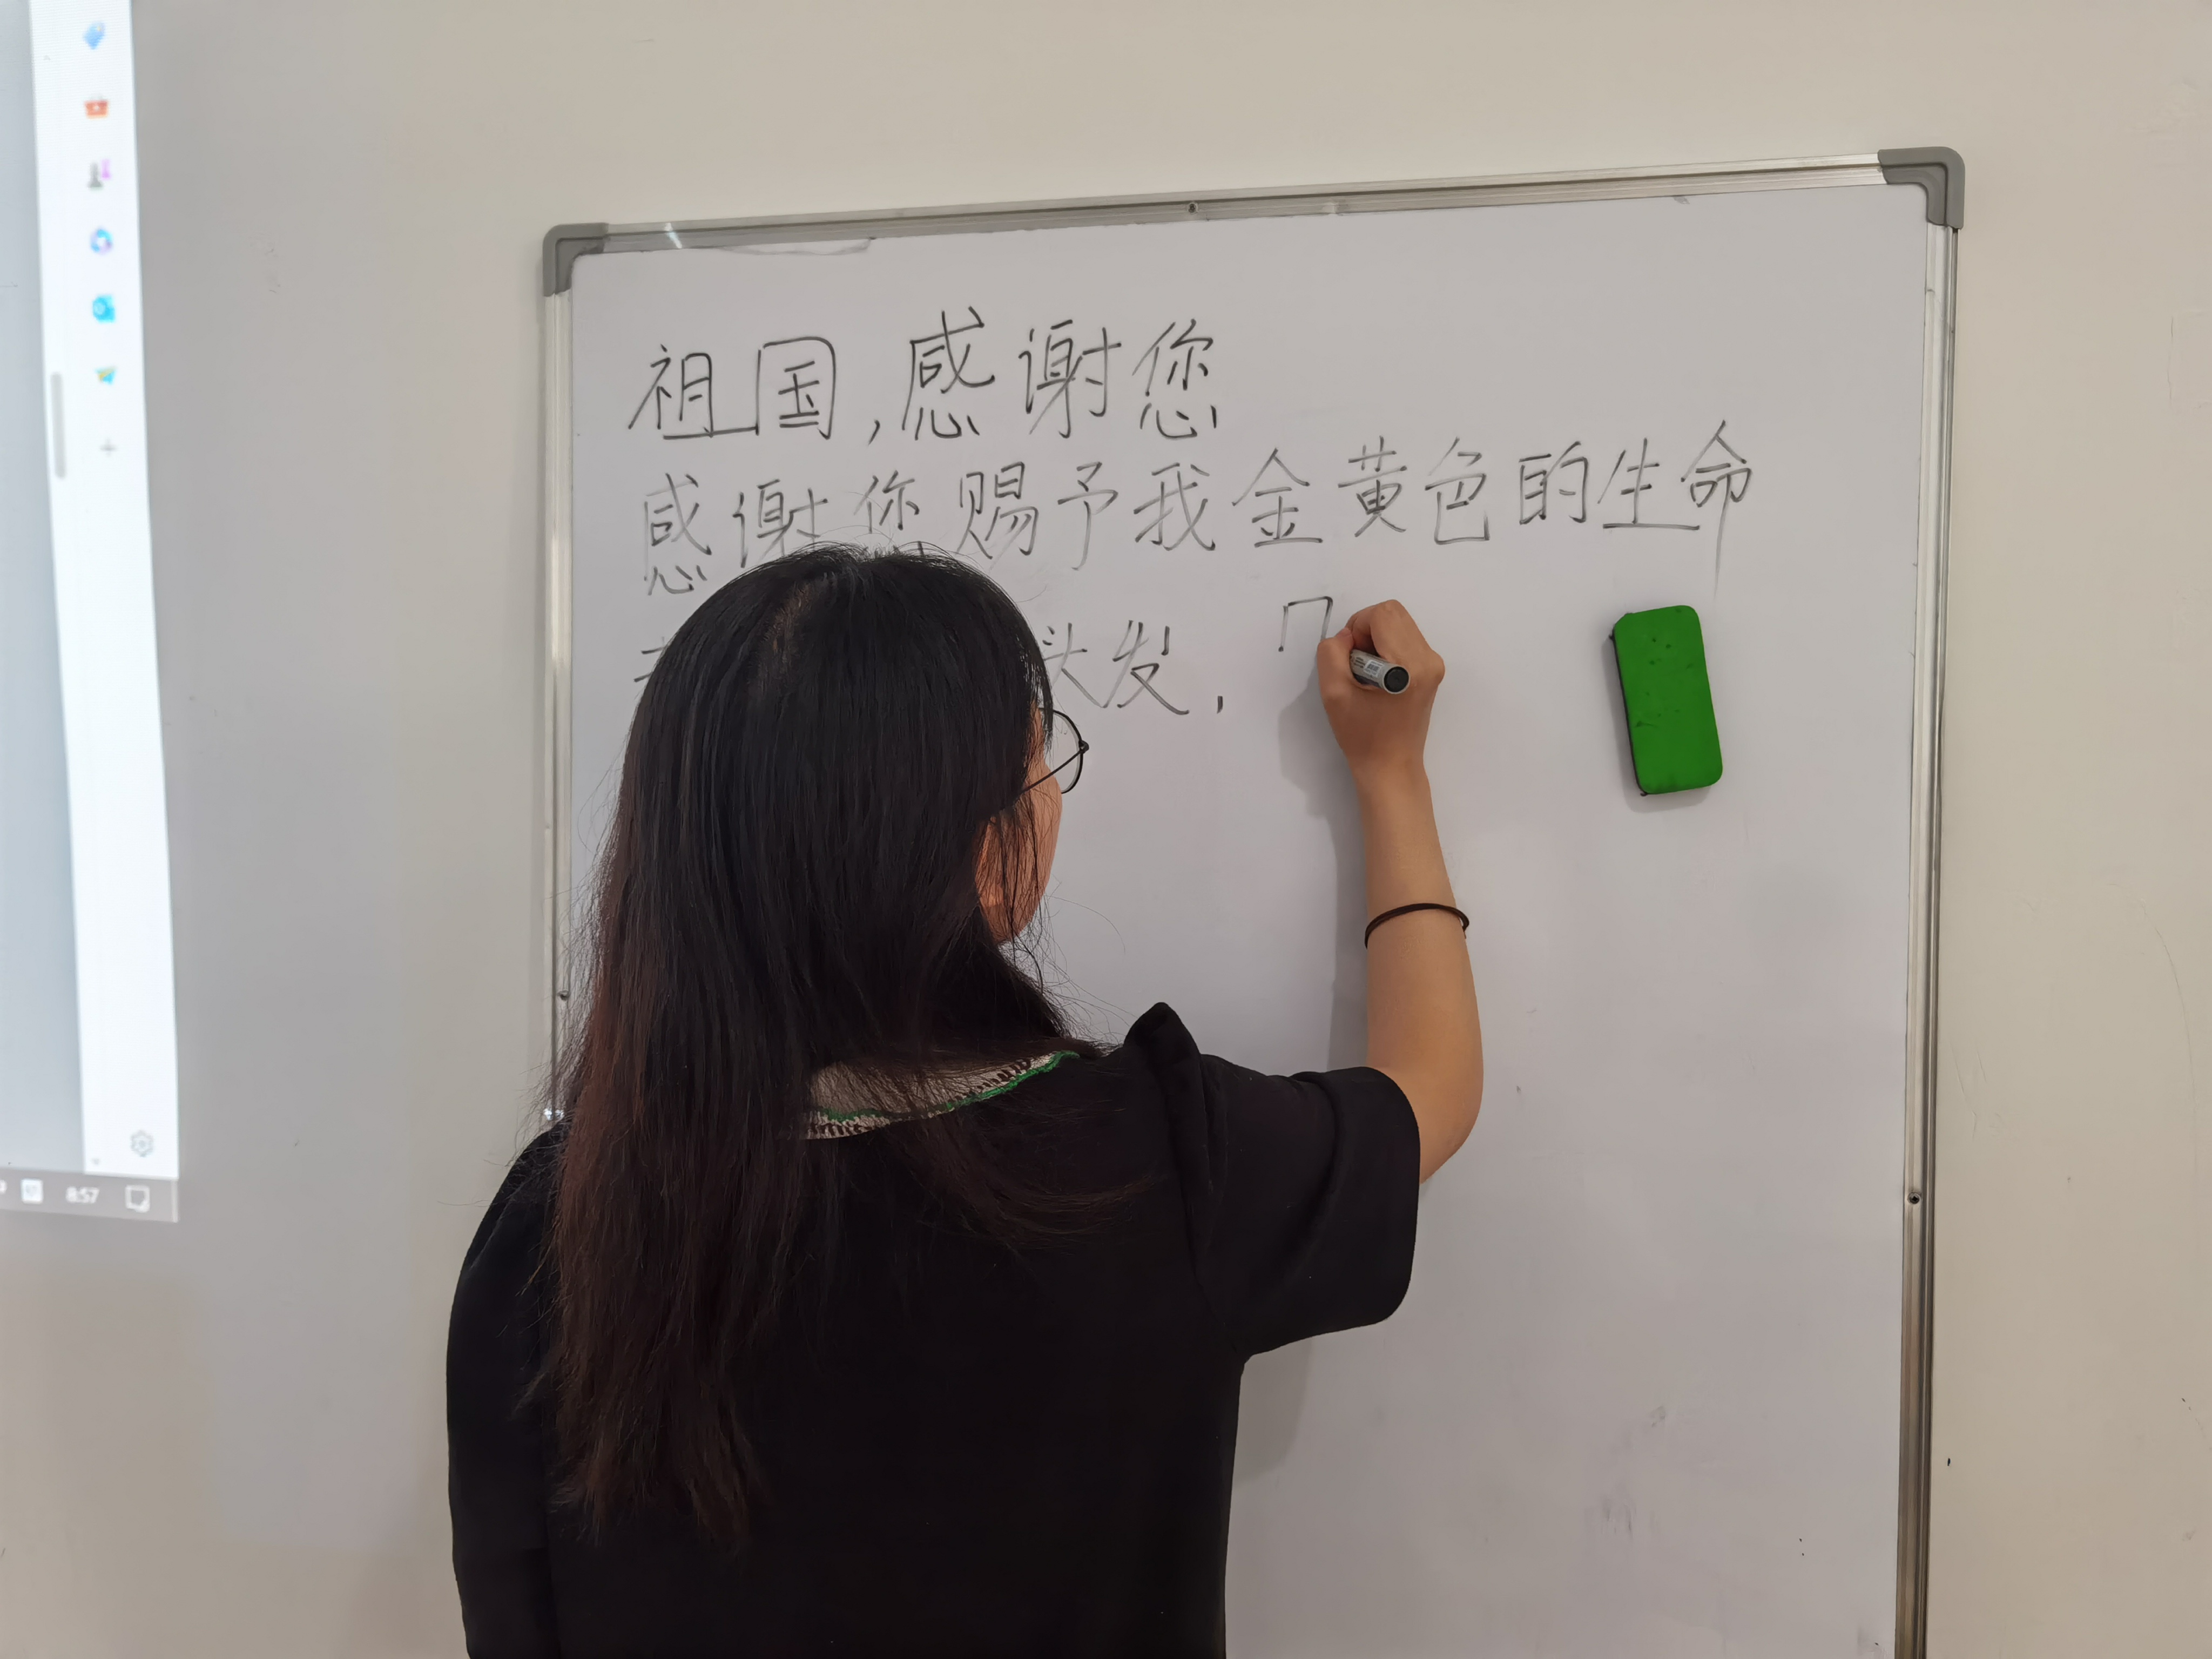 祖国,感谢您
感谢您赐予我金黄色的生命
头发,
8:57